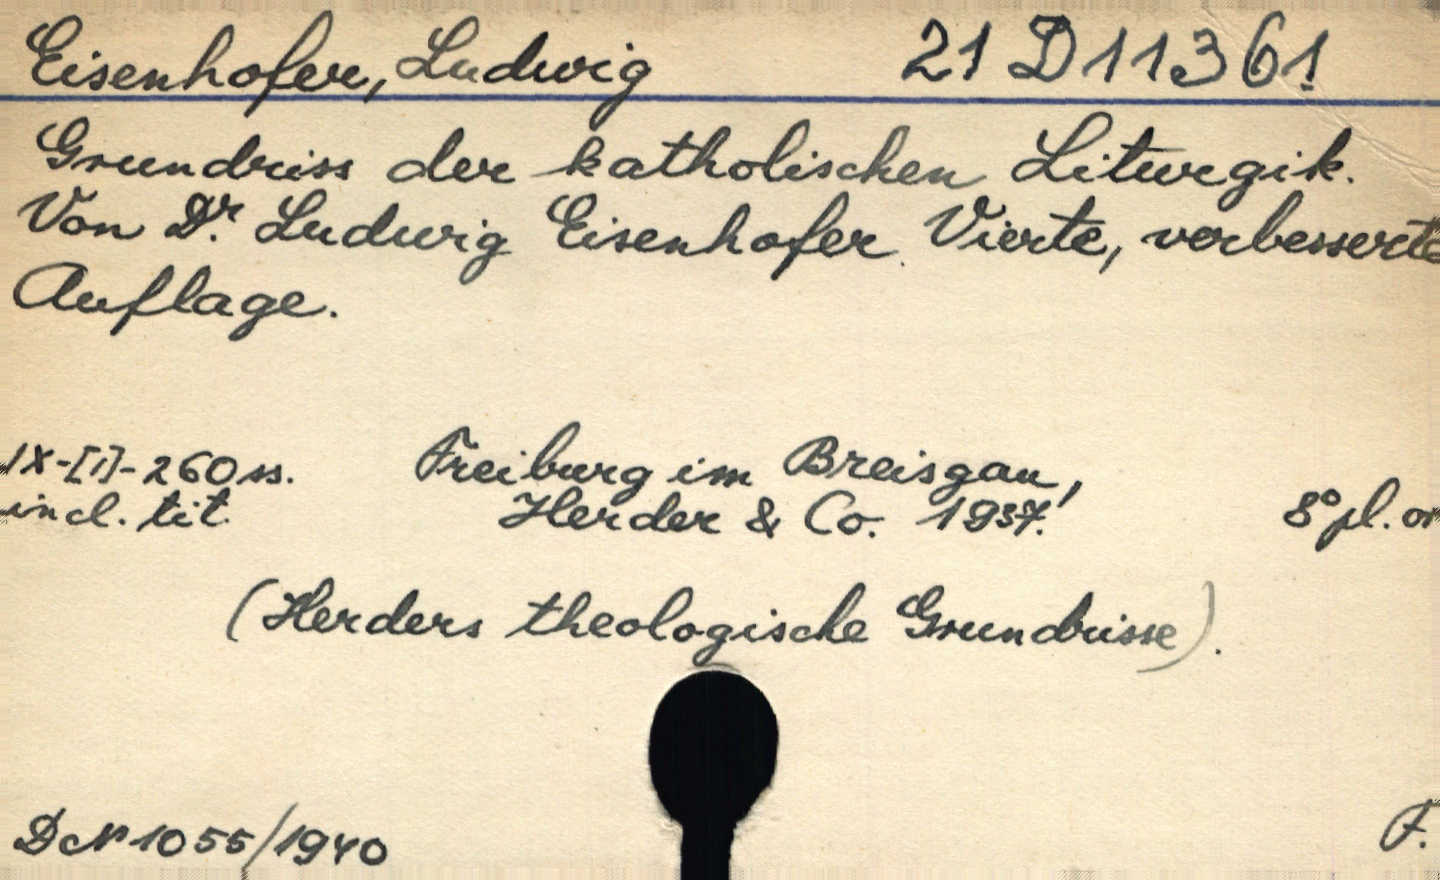 Eisenhofer, Ludwig 21 D 11361
Grundriss der katholischen Liturgik.
Von Dr. Ludwig Eisenhofer. Vierte, verbesserte
Auflage.
IX-[1]-260 ss. Freiburg im Breisgau,
incl. tit. Herder & Co. 1937. 8° pl. or
(Herders theologische Grundrisse).
1055/1940 F.